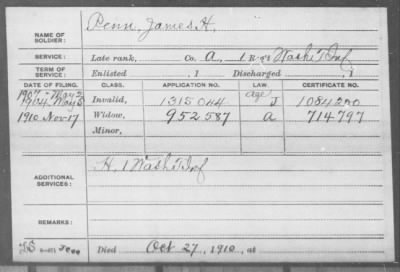 NAME OF SOLDIER: Penn, James H.
SERVICE: Late rank, Co. A, 1 Reg't Wash T Inf
TERM OF SERVICE: Enlisted , 1 Discharged , 1
DATE OF FILING. CLASS. APPLICATION NO. LAW. CERTIFICATE NO.
1907 - May 2
1904 May 5 Invalid, 1315044 age J 1084200
1910 Nov 17 Widow, 952587 A 714797
Minor,
ADDITIONAL SERVICES: H. 1 Wash T Inf
REMARKS:
Died Oct 27, 1910, at